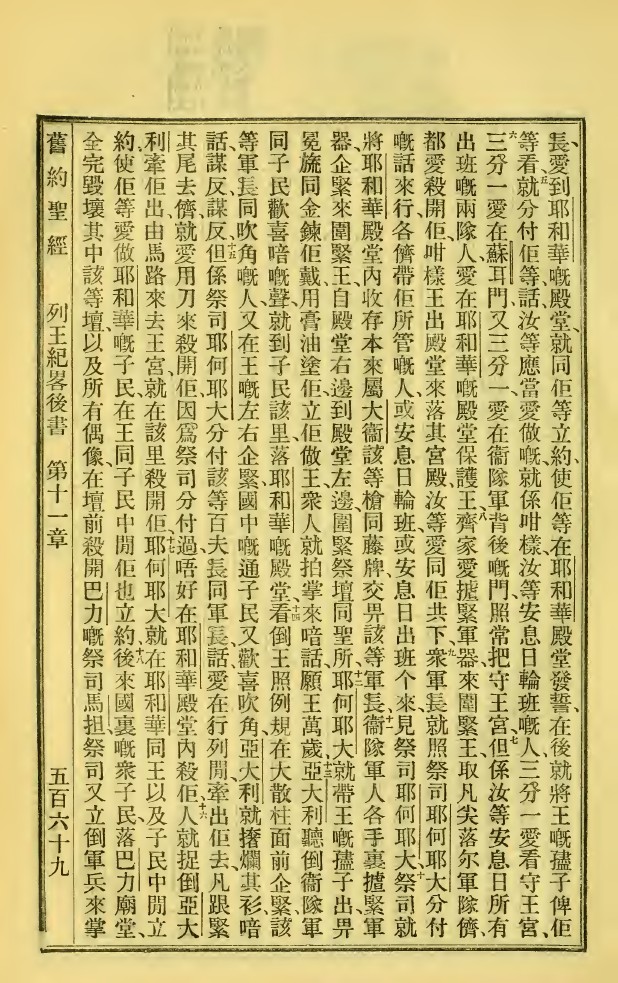 長、愛到耶和華嘅殿堂、就同佢等立約、使佢等在耶和華殿堂發誓、在後就將王嘅孻子俾佢
等看、五就分付佢等話、汝等應當愛做嘅就係咁樣、汝等安息日輪班嘅人、三分一愛看守王宮、
六三分一愛在蘇耳門、又三分一愛在衞隊軍背後嘅門、照常把守王宮、七但係汝等安息日所有
出班嘅兩隊人、愛在耶和華嘅殿堂保護王、八齊家愛揸緊軍器來圍緊王、取凡尖落尔軍隊儕、
都愛殺開佢、咁樣王出殿堂來落其宮殿、汝等愛同佢共下、九衆軍長就照祭司耶何耶大分付
嘅話來行、各儕帶佢所管嘅人、或安息日輪班、或安息日出班个、來見祭司耶何耶大、十祭司就
將耶和華殿堂內收存本來屬大衞該等槍同藤牌、交畀該等軍長、十一衞隊軍人各手裏揸緊軍
器、企緊來圍緊王、自殿堂右邊到殿堂左邊、圍緊祭壇同聖所、十二耶何耶大就帶王嘅孻子出、畀
冕旒同金鍊佢戴、用膏油塗佢、立佢做王、衆人就拍掌來喑話、願王萬歲、十三亞大利聽倒衞隊軍
同子民歡喜喑嘅聲、就到子民該里、落耶和華嘅殿堂、十四看倒王照例規在大散柱面前企緊、該
等軍長同吹角嘅人、又在王嘅左右企緊、國中嘅通子民又歡喜吹角、亞大利就擽爛其衫、喑
話、謀反、謀反、十五但係祭司耶何耶大分付該等百夫長同軍長話、愛在行列閒牽出佢去、凡跟緊
其尾去儕、就愛用刀來殺開佢、因爲祭司分付過、唔好在耶和華殿堂內殺佢、十六人就捉倒亞大
利、牽佢出、由馬路來去王宮、就在該里殺開佢、十七耶何耶大就在耶和華同王以及子民中閒立
約、使佢等愛做耶和華嘅子民、在王同子民中閒佢也立約、十八後來國裏嘅衆子民落巴力廟堂、
全完毀壞其中該等壇、以及所有偶像、在壇前殺開巴力嘅祭司馬担、祭司又立倒軍兵來掌
舊約聖經 列王紀畧後書 第十一章 五百六十九